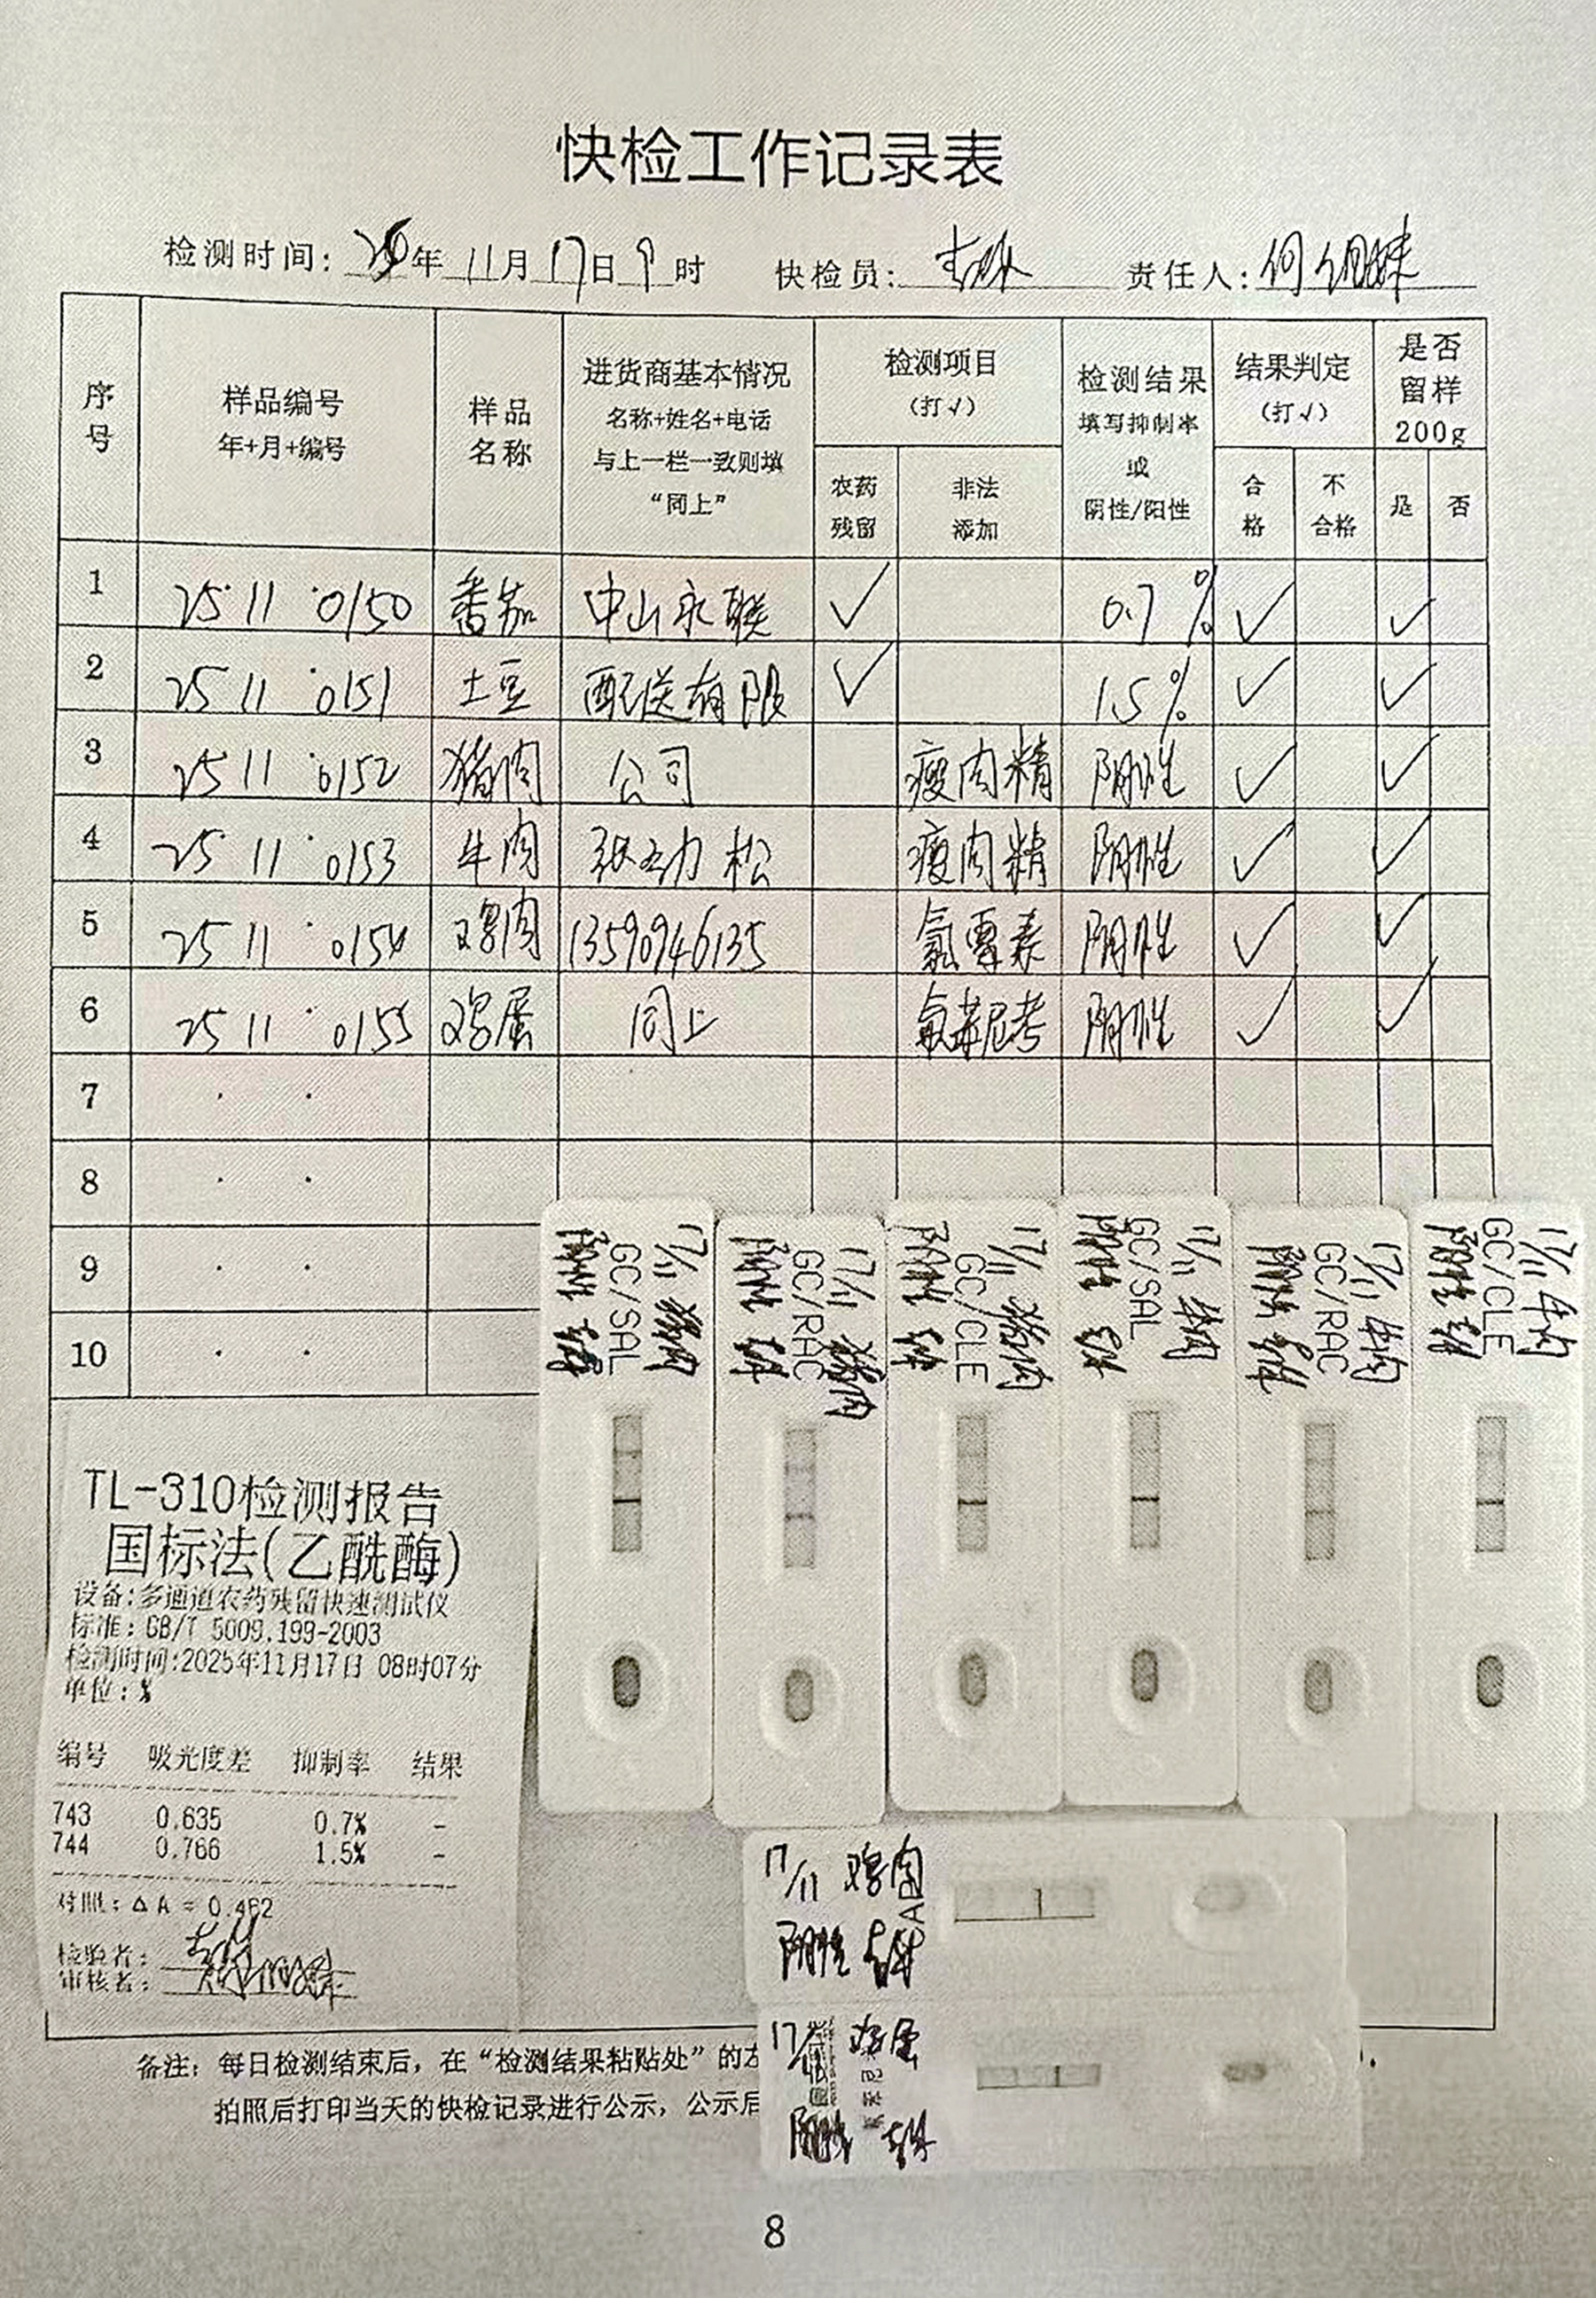 快检工作记录表
检测时间: 25年 11月 17日 9时 快检员: 责任人: 何
序号 样品编号 年+月+编号 样品名称 进货商基本情况 名称+姓名+电话 与上一栏一致则填 “同上” 检测项目 (打√) 农药残留 非法添加 检测结果 填写抑制率 或 阴性/阳性 结果判定 (打√) 合格 不合格 是否留样 200g 是 否
1 25·11·0150 番茄 中山永联 ✓ 0.7% ✓ ✓
2 25 11·0151 土豆 配送有限 ✓ 1.5% ✓ ✓
3 25 11·0152 猪肉 公司 瘦肉精 阴性 ✓ ✓
4 25 11·0153 牛肉 张劲松 瘦肉精 阴性 ✓ ✓
5 25 11·0154 鸡肉 13590946135 氯霉素 阴性 ✓ ✓
6 25 11·0155 鸡蛋 同上 氟苯尼考 阴性 ✓ ✓
7 · ·
8 · ·
9 · ·
10 · ·
17/11 猪肉 GC/SAL 阴性
17/11 猪肉 GC/RAC 阴性
17/11 猪肉 GC/CLE 阴性
17/11 牛肉 GC/SAL 阴性
17/11 牛肉 GC/RAC 阴性
17/11 牛肉 GC/CLE 阴性
TL-310检测报告
国标法(乙酰酶)
设备:多通道农药残留快速测试仪
标准: GB/T 5009.199-2003
检测时间:2025年11月17日 08时07分
单位: %
编号 吸光度差 抑制率 结果
743 0.635 0.7% -
744 0.766 1.5% -
对照: ΔA = 0.462
检验者:
审核者:
17/11 鸡肉
阴性
17/11 鸡蛋
阴性
备注: 每日检测结束后, 在“检测结果粘贴处”的左
拍照后打印当天的快检记录进行公示, 公示后
8